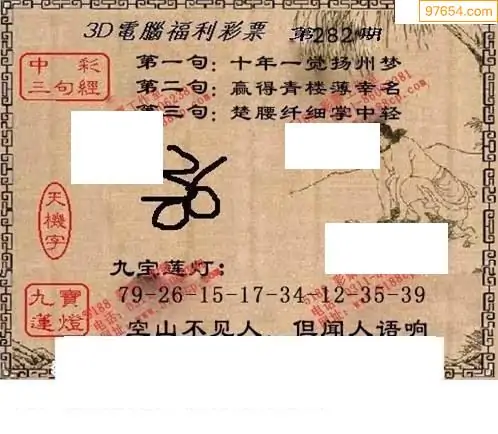 97654.com
3D電腦福利彩票 第282期
中彩
三句經
第一句：十年一觉扬州梦
第二句：赢得青楼薄幸名
第三句：楚腰纤细掌中轻
天機字
九宝莲灯：
九寶
蓮燈
79-26-15-17-34-12-35-39
空山不见人，但闻人语响